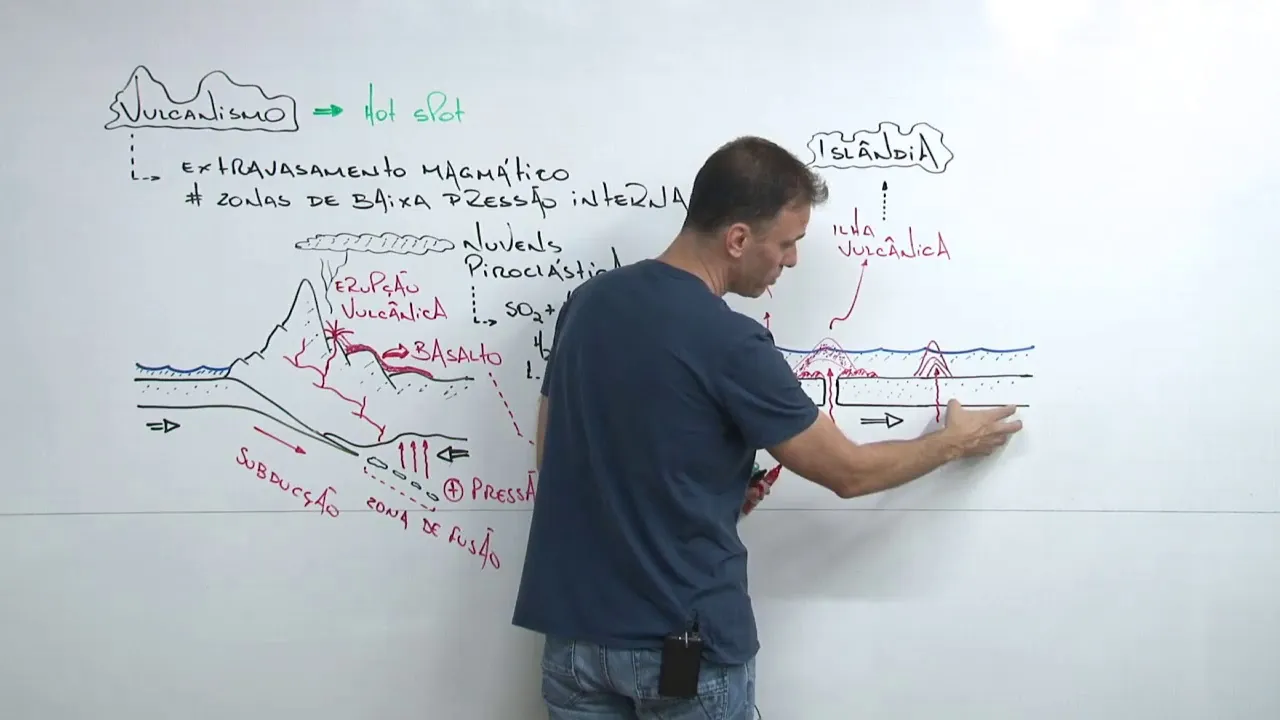 VULCANISMO ⇒ Hot spot
EXTRAVASAMENTO MAGMÁTICO
# ZONAS DE BAIXA PRESSÃO INTERNA
NUVENS
ERUPÇÃO
VULCÂNICA
SO₂+
BASALTO
SUBDUCÇÃO
ZONA DE FUSÃO
⊕
ISLÂNDIA
ILHA
VULCÂNICA